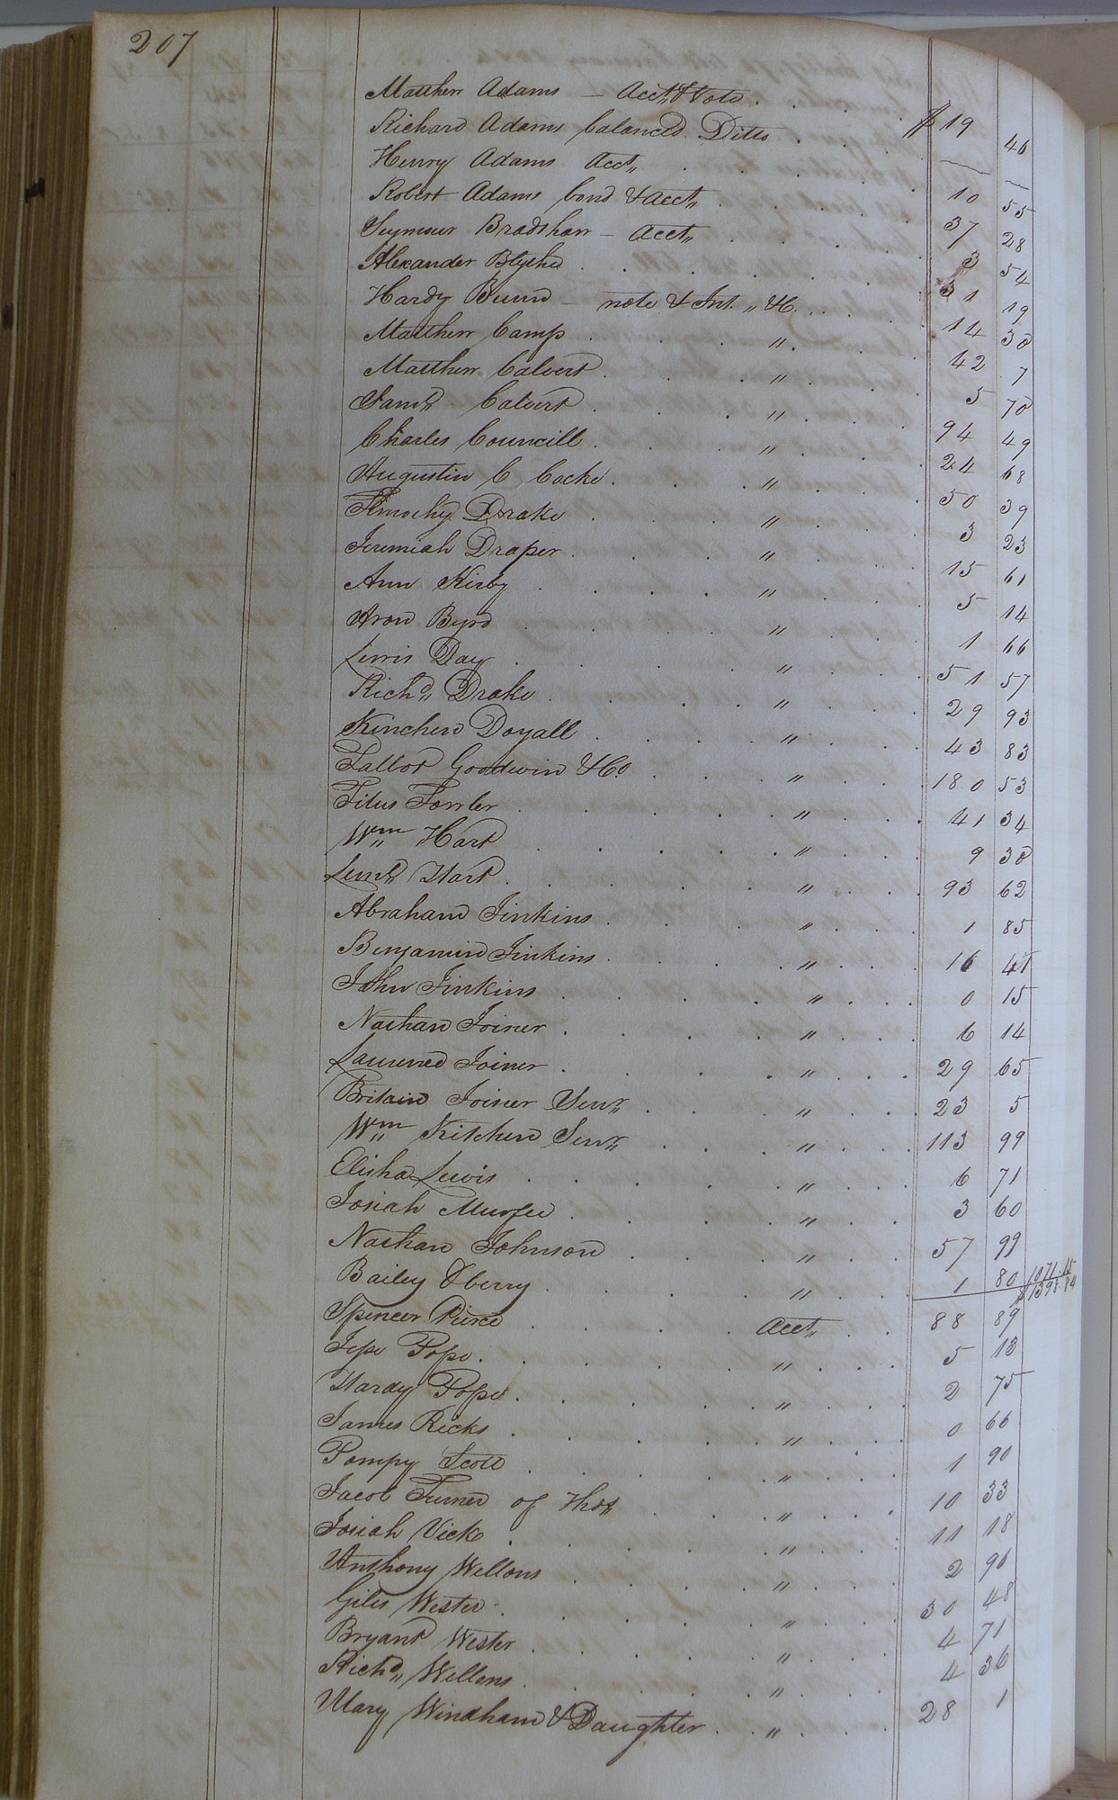 207
Matthew Adams — Acct,, & Note . . . $ 19 46
Richard Adams balanced Ditto . . — —
Henry Adams Acct,, . . . 10 55
Robert Adams bond & Acct,, . . . 37 28
Seymour Bradshaw — Acct,, . . . 3 54
Alexander Blythe . . . 31 19
Hardy Bunn — note & Int. ,, &C. . . . 14 38
Matthew Camp . . . ,, . . 42 7
Matthew Calvert . . . ,, . . 5 70
Saml,, Calvert . . . ,, . . 94 49
Charles Councill . . . ,, . . 24 68
Augustin C Cocke . . . ,, . . 50 39
Timothy Drake . . . ,, . . 3 23
Jeremiah Draper . . . ,, . . 15 61
Ann Kirby . . . ,, . . 5 14
Aron Byrd . . . ,, . . 1 66
Lewis Day . . . ,, . . 51 57
Richd,, Drake . . . ,, . . 29 93
Kinchen Doyall . . . ,, . . 43 83
Talbot Goodwin & Co . . . ,, . . 180 53
Titus Fowler . . . ,, . . 41 34
Wm,, Hart . . . ,, . . 9 38
Leml,, Hart . . . ,, . . 93 62
Abraham Jinkins . . . ,, . . 1 85
Benjamin Jinkins . . . ,, . . 16 41
John Jinkins . . . ,, . . 0 15
Nathan Joiner . . . ,, . . 6 14
Laurence Joiner . . . ,, . . 29 65
Britain Joiner Senr,, . . . ,, . . 23 5
Wm,, Kitchen Senr,, . . . ,, . . 113 99
Elisha Lewis . . . ,, . . 6 71
Josiah Murfee . . . ,, . . 3 60
Nathan Johnson . . . ,, . . 57 99
Bailey Oberry . . . ,, . . 1 80 1071.15
Spencer Pierce . . . Acct,, . . 88 89
Jesse Pope . . . ,, . . 5 13
Hardy Pope . . . ,, . . 2 75
James Ricks . . . ,, . . 0 66
Pompy Scott . . . ,, . . 1 90
Jacob Turner of Thos . . . ,, . . 10 33
Josiah Vick . . . ,, . . 11 18
Anthony Wellons . . . ,, . . 2 96
Giles Wester . . . ,, . . 30 48
Bryant Wester . . . ,, . . 4 71
Richd,, Wellons . . . ,, . . 4 36
Mary Windham & Daughter . . ,, . . 28 1